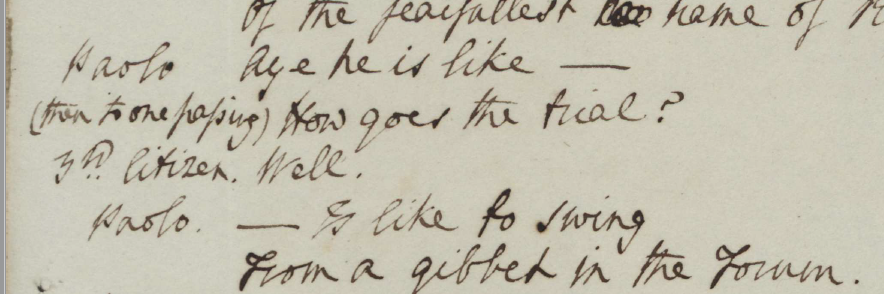 of the fearfullest name of
Paolo Aye he is like —
(then to one passing) How goes the trial?
3rd Citizen. Well.
Paolo. — Is like to swing
From a gibbet in the Forum.